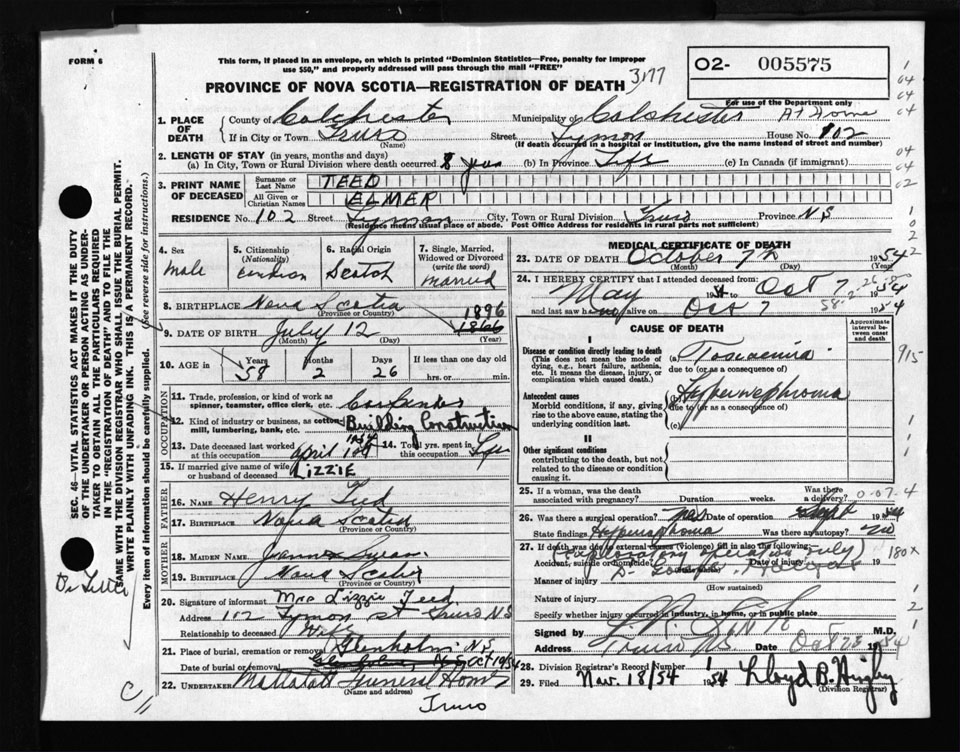 FORM 6
This form, if placed in an envelope, on which is printed "Dominion Statistics—Free, penalty for improper
use $50," and properly addressed will pass through the mail "FREE"
O2- 005575
PROVINCE OF NOVA SCOTIA—REGISTRATION OF DEATH
For use of the Department only
1. PLACE OF DEATH
County of Colchester Municipality of Colchester At Home
If in City or Town Truro Street Lyman House No. 102
(Name) (If death occurred in a hospital or institution, give name instead of street and number)
2. LENGTH OF STAY (in years, months and days)
(a) In City, Town or Rural Division where death occurred 8 years (b) In Province Life (c) In Canada (if immigrant)
3. PRINT NAME OF DECEASED
Surname or Last Name TEED
All Given or Christian Names ELMER
RESIDENCE No. 102 Street Lyman City, Town or Rural Division Truro Province N.S
(Residence means usual place of abode. Post Office Address for residents in rural parts not sufficient)
4. Sex Male
5. Citizenship (Nationality) Canadian
6. Racial Origin Scotch
7. Single, Married, Widowed or Divorced (write the word) Married
8. BIRTHPLACE Nova Scotia
(Province or Country)
1896
9. DATE OF BIRTH July 12 1866
(Month) (Day) (Year)
10. AGE in Years 58 Months 2 Days 26 If less than one day old
hrs. or min.
OCCUPATION
11. Trade, profession, or kind of work as spinner, teamster, office clerk, etc. Carpenter
12. Kind of industry or business, as cotton mill, lumbering, bank, etc. Building Construction
13. Date deceased last worked at this occupation April 1954
14. Total yrs. spent in this occupation Life
15. If married give name of wife or husband of deceased LIZZIE
FATHER
16. NAME Henry Teed
17. BIRTHPLACE Nova Scotia
(Province or Country)
MOTHER
18. MAIDEN NAME
19. BIRTHPLACE Nova Scotia
(Province or Country)
20. Signature of informant Mrs Lizzie Teed
Address 112 Lyman St Truro N.S
Relationship to deceased Wife
21. Place of burial, cremation or removal Glenholm N.S.
Date of burial or removal Oct 10/54
22. UNDERTAKER Mattatall Funeral Home
(Name and address)
Truro
MEDICAL CERTIFICATE OF DEATH
23. DATE OF DEATH October 7th 1954
(Month) (Day) (Year)
24. I HEREBY CERTIFY that I attended deceased from
May 19 to Oct 7 1954
and last saw alive on Oct 7 1954
58-2-26
CAUSE OF DEATH
Approximate interval between onset and death
I
Disease or condition directly leading to death
(This does not mean the mode of dying, e.g., heart failure, asthenia, etc. It means the disease, injury, or complication which caused death.)
(a) Toxaemia
due to (or as a consequence of)
Antecedent causes
Morbid conditions, if any, giving rise to the above cause, stating the underlying condition last.
(b) Hypernephroma
due to (or as a consequence of)
(c)
II
Other significant conditions
contributing to the death, but not related to the disease or condition causing it.
25. If a woman, was the death associated with pregnancy? Duration weeks. Was there a delivery?
26. Was there a surgical operation? Yes Date of operation Sept 1954
State findings Hypernephroma Was there an autopsy? no
27. If death was due to external causes (violence) fill in also the following:
(Exploratory operation July)
Accident, suicide or homicide? Date of injury 19
180x
Manner of injury
(How sustained)
Nature of injury
Specify whether injury occurred in industry, in home, or in public place
Signed by M.D.
Address Truro NS Date Oct 23 1954
28. Division Registrar's Record Number
29. Filed Nov. 18/54 1954 Lloyd B. Higby
(Division Registrar)
SEC. 46—VITAL STATISTICS ACT MAKES IT THE DUTY
OF THE UNDERTAKER OR PERSON ACTING AS UNDER-
TAKER TO OBTAIN ALL THE PARTICULARS REQUIRED
IN THE "REGISTRATION OF DEATH" AND TO FILE THE
SAME WITH THE DIVISION REGISTRAR WHO SHALL ISSUE THE BURIAL PERMIT.
WRITE PLAINLY WITH UNFADING INK. THIS IS A PERMANENT RECORD.
Every item of information should be carefully supplied. (See reverse side for instructions.)